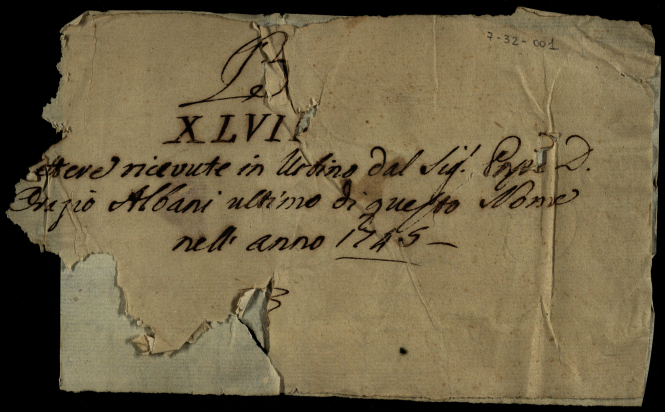 7-32-001
B
XLVII
ettere ricevute in Urbino dal Sig.r D.
Orazio Albani ultimo di questo Nome
nell' anno 1745